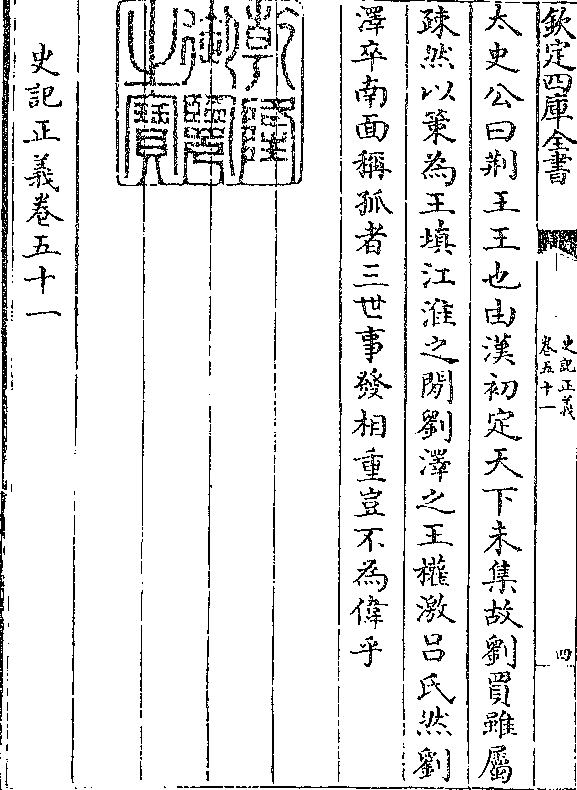 欽定四庫全書
史記正義
卷五十一
四
太史公曰荆王王也由漢初定天下未集故劉賈雖屬
疎然以策為王填江淮之間劉澤之王權激呂氏然劉
澤卒南面稱孤者三世事發相重豈不為偉乎
乾隆
御覽
之寶
史記正義卷五十一